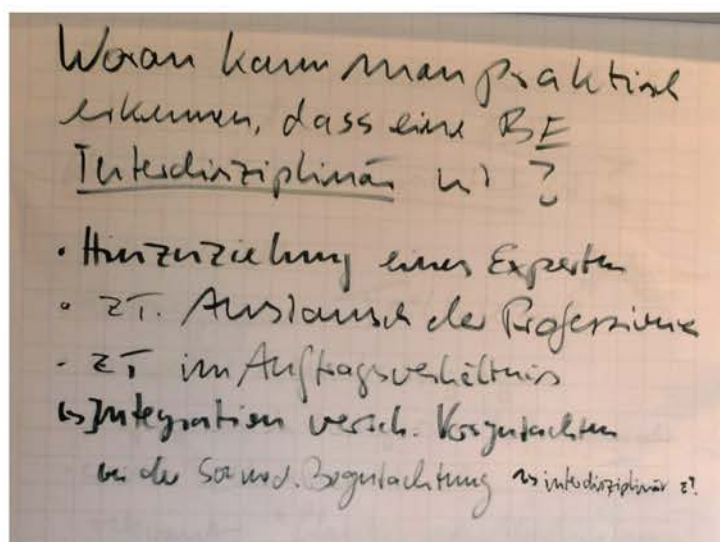 Woran kann man praktisch
erkennen, dass eine BE
Interdisziplinär ist ?
• Hinzuziehung eines Experten
• z.T. Austausch der Professionen
• z.T. im Auftragsverhältnis
↳ Integration versch. Vorgutachten
bei der Sozmed. Begutachtung ↝ interdisziplinär ?